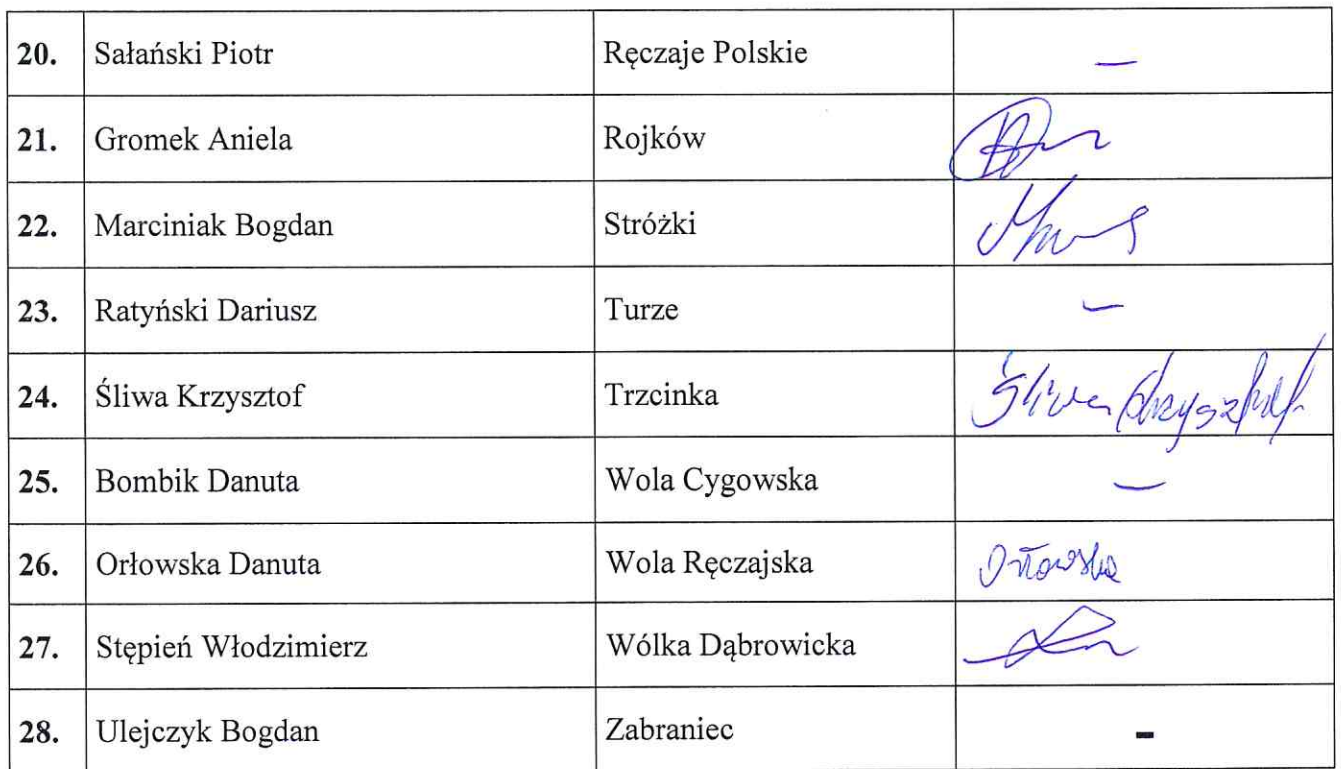 20. Sałański Piotr Ręczaje Polskie –
21. Gromek Aniela Rojków
22. Marciniak Bogdan Stróżki
23. Ratyński Dariusz Turze –
24. Śliwa Krzysztof Trzcinka Śliwa Krzysztof
25. Bombik Danuta Wola Cygowska –
26. Orłowska Danuta Wola Ręczajska Orłowska
27. Stępień Włodzimierz Wólka Dąbrowicka
28. Ulejczyk Bogdan Zabraniec -